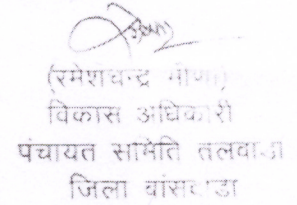 (रमेशचन्द्र मीणा)
विकास अधिकारी
पंचायत समिति तलवाडा
जिला बांसवाडा